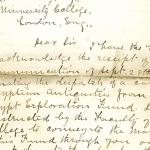 University College,
London, Eng.,
Dear Sir I have the
acknowledge the receipt of
communication of Sept. 25th
of a
Egyptian Antiquities from
Egypt Exploration Fund
instructed by the Faculty of
College to convey to the
this Fund through you